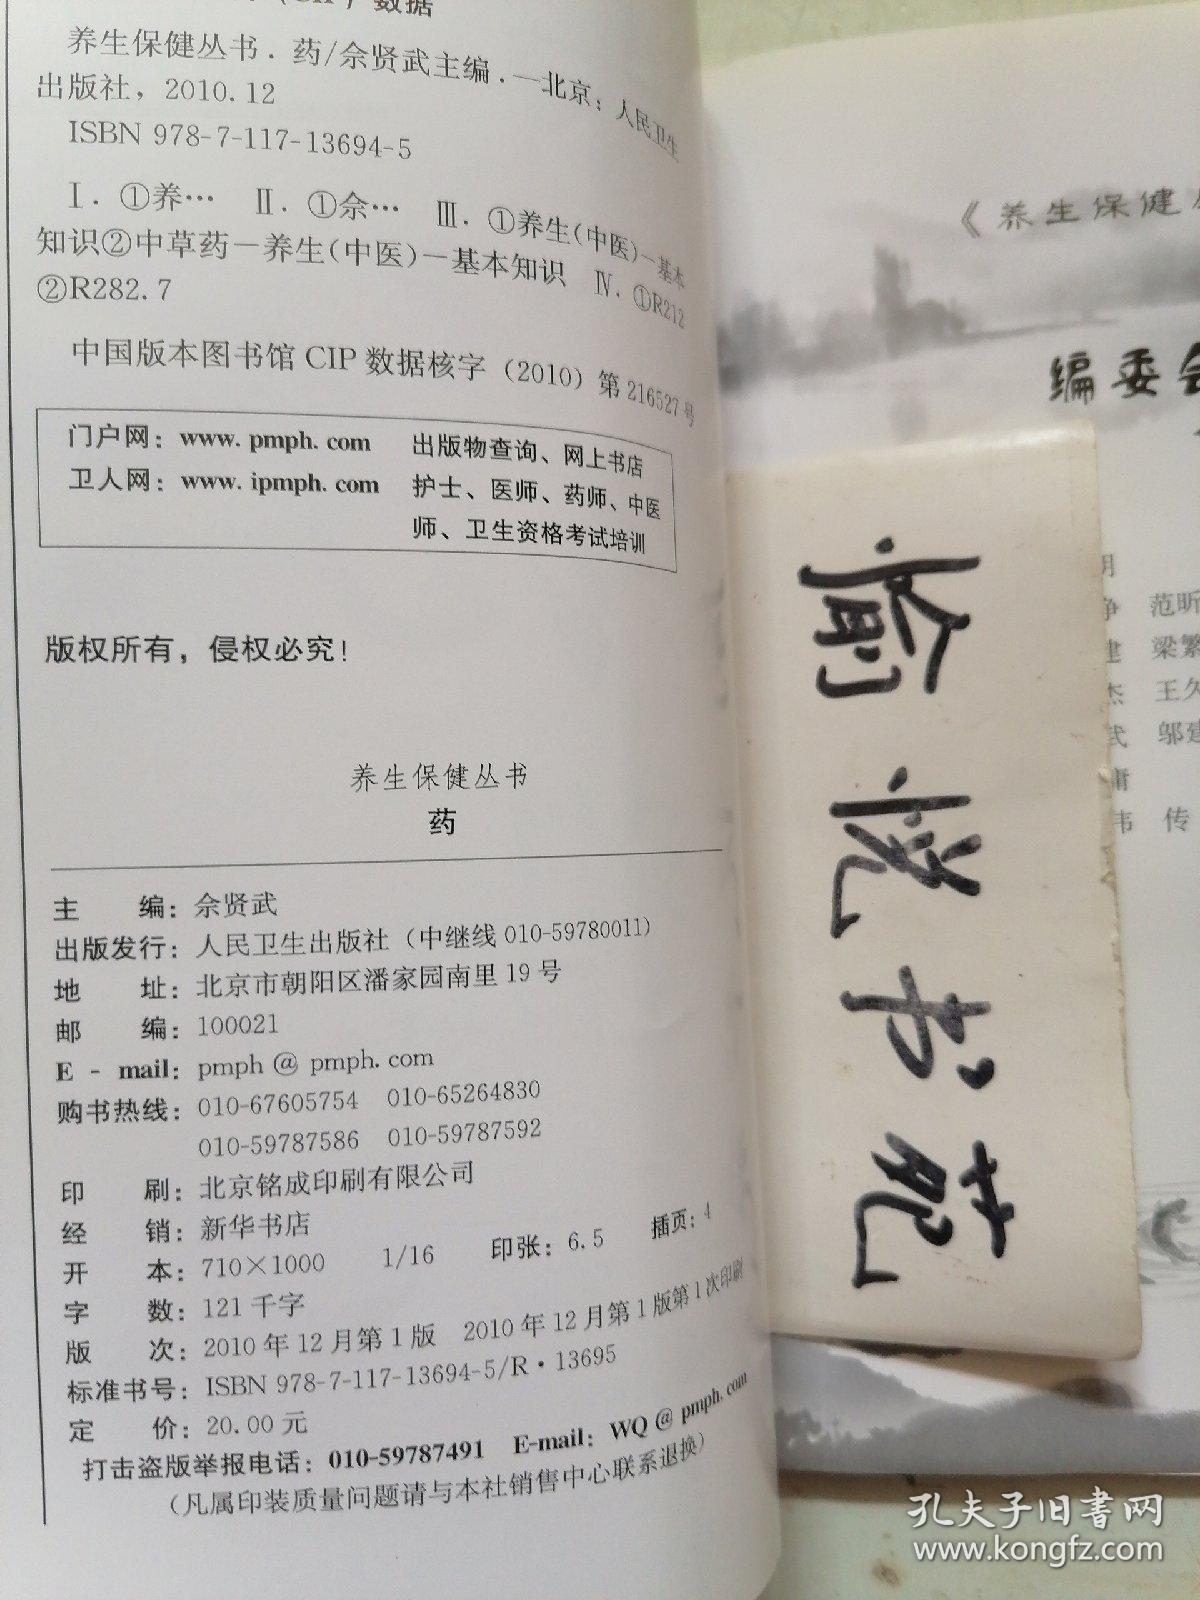 (CIP) 数据
养生保健丛书．药/佘贤武主编．—北京：人民卫生
出版社，2010.12
ISBN 978-7-117-13694-5
Ⅰ．①养… Ⅱ．①佘… Ⅲ．①养生(中医)－基本
知识②中草药－养生(中医)－基本知识 Ⅳ．①R212
②R282.7
中国版本图书馆 CIP 数据核字（2010）第 216527 号
门户网：www.pmph.com 出版物查询、网上书店
卫人网：www.ipmph.com 护士、医师、药师、中医
师、卫生资格考试培训
版权所有，侵权必究！
养生保健丛书
药
主 编：佘贤武
出版发行：人民卫生出版社（中继线 010-59780011）
地 址：北京市朝阳区潘家园南里 19 号
邮 编：100021
E - mail：pmph @ pmph.com
购书热线：010-67605754 010-65264830
010-59787586 010-59787592
印 刷：北京铭成印刷有限公司
经 销：新华书店
开 本：710×1000 1/16 印张：6.5 插页：4
字 数：121 千字
版 次：2010 年 12 月第 1 版 2010 年 12 月第 1 版第 1 次印刷
标准书号：ISBN 978-7-117-13694-5/R·13695
定 价：20.00 元
打击盗版举报电话：010-59787491 E-mail：WQ @ pmph.com
（凡属印装质量问题请与本社销售中心联系退换）
《养生保健
编委会
范昕
建 梁繁
杰 王久
武 邬建
韦 传
书苑
孔夫子旧书网
www.kongfz.com